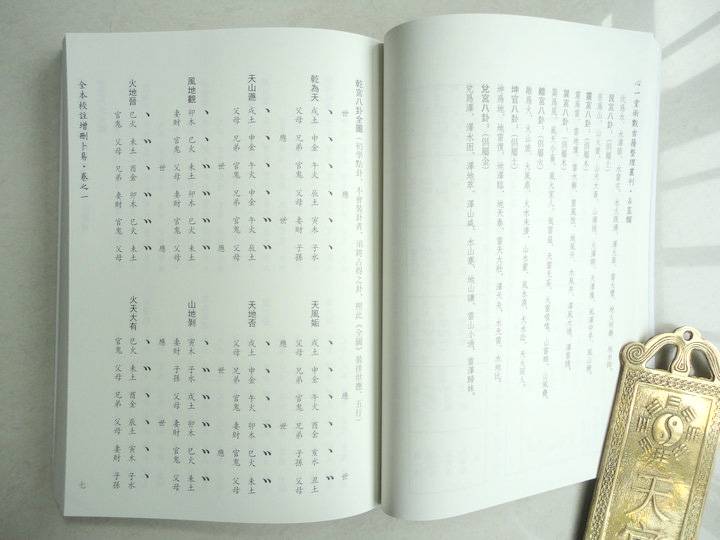 心一堂術數古籍整理叢刊．占筮類
坎為水、水澤節、水雷屯、水火既濟、澤火革、雷火豐、地火明夷、地水師。
艮宮八卦：（俱屬土）
艮為山、山火賁、山天大畜、山澤損、火澤睽、天澤履、風澤中孚、風山漸。
震宮八卦：（俱屬木）
震為雷、雷地豫、雷水解、雷風恆、地風升、水風井、澤風大過、澤雷隨。
巽宮八卦：（俱屬木）
巽為風、風天小畜、風火家人、風雷益、天雷无妄、火雷噬嗑、山雷頤、山風蠱。
離宮八卦：（俱屬火）
離為火、火山旅、火風鼎、火水未濟、山水蒙、風水渙、天水訟、天火同人。
坤宮八卦：（俱屬土）
坤為地、地雷復、地澤臨、地天泰、雷天大壯、澤天夬、水天需、水地比。
兌宮八卦：（俱屬金）
兌為澤、澤水困、澤地萃、澤山咸、水山蹇、地山謙、雷山小過、雷澤歸妹。
乾宮八卦全圖（初學點卦，不會裝卦者，須將占得之卦，照此《全圖》裝排世應、五行）
世 應
乾為天 戌土 申金 午火 辰土 寅木 子水
父母 兄弟 官鬼 父母 妻財 子孫
應 世
天風姤 戌土 申金 午火 酉金 亥水 丑土
父母 兄弟 官鬼 兄弟 子孫 父母
應 世
天山遯 戌土 申金 午火 申金 午火 辰土
父母 兄弟 官鬼 兄弟 官鬼 父母
應 世
天地否 戌土 申金 午火 卯木 巳火 未土
父母 兄弟 官鬼 妻財 官鬼 父母
世 應
風地觀 卯木 巳火 未土 卯木 巳火 未土
妻財 官鬼 父母 妻財 官鬼 父母
世 應
山地剝 寅木 子水 戌土 卯木 巳火 未土
妻財 子孫 父母 妻財 官鬼 父母
世 應
火地晉 巳火 未土 酉金 卯木 巳火 未土
官鬼 父母 兄弟 妻財 官鬼 父母
應 世
火天大有 巳火 未土 酉金 辰土 寅木 子水
官鬼 父母 兄弟 父母 妻財 子孫
全本校註增刪卜易．卷之一
七
天官